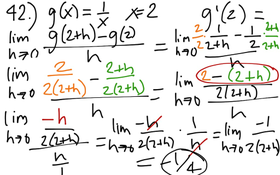 42.) g(x) = 1/x x=2 g'(2) =
lim h→0 (g(2+h) - g(2))/h = lim h→0 (2/2 · 1/(2+h) - 1/2 · (2+h)/(2+h))/h
lim h→0 (2/(2(2+h)) - (2+h)/(2(2+h)))/h = lim h→0 ((2 - (2+h))/(2(2+h)))/h =
lim h→0 (-h/(2(2+h)))/(h/1) = lim h→0 -h/(2(2+h)) · 1/h = lim h→0 -1/(2(2+h))
= -1/4